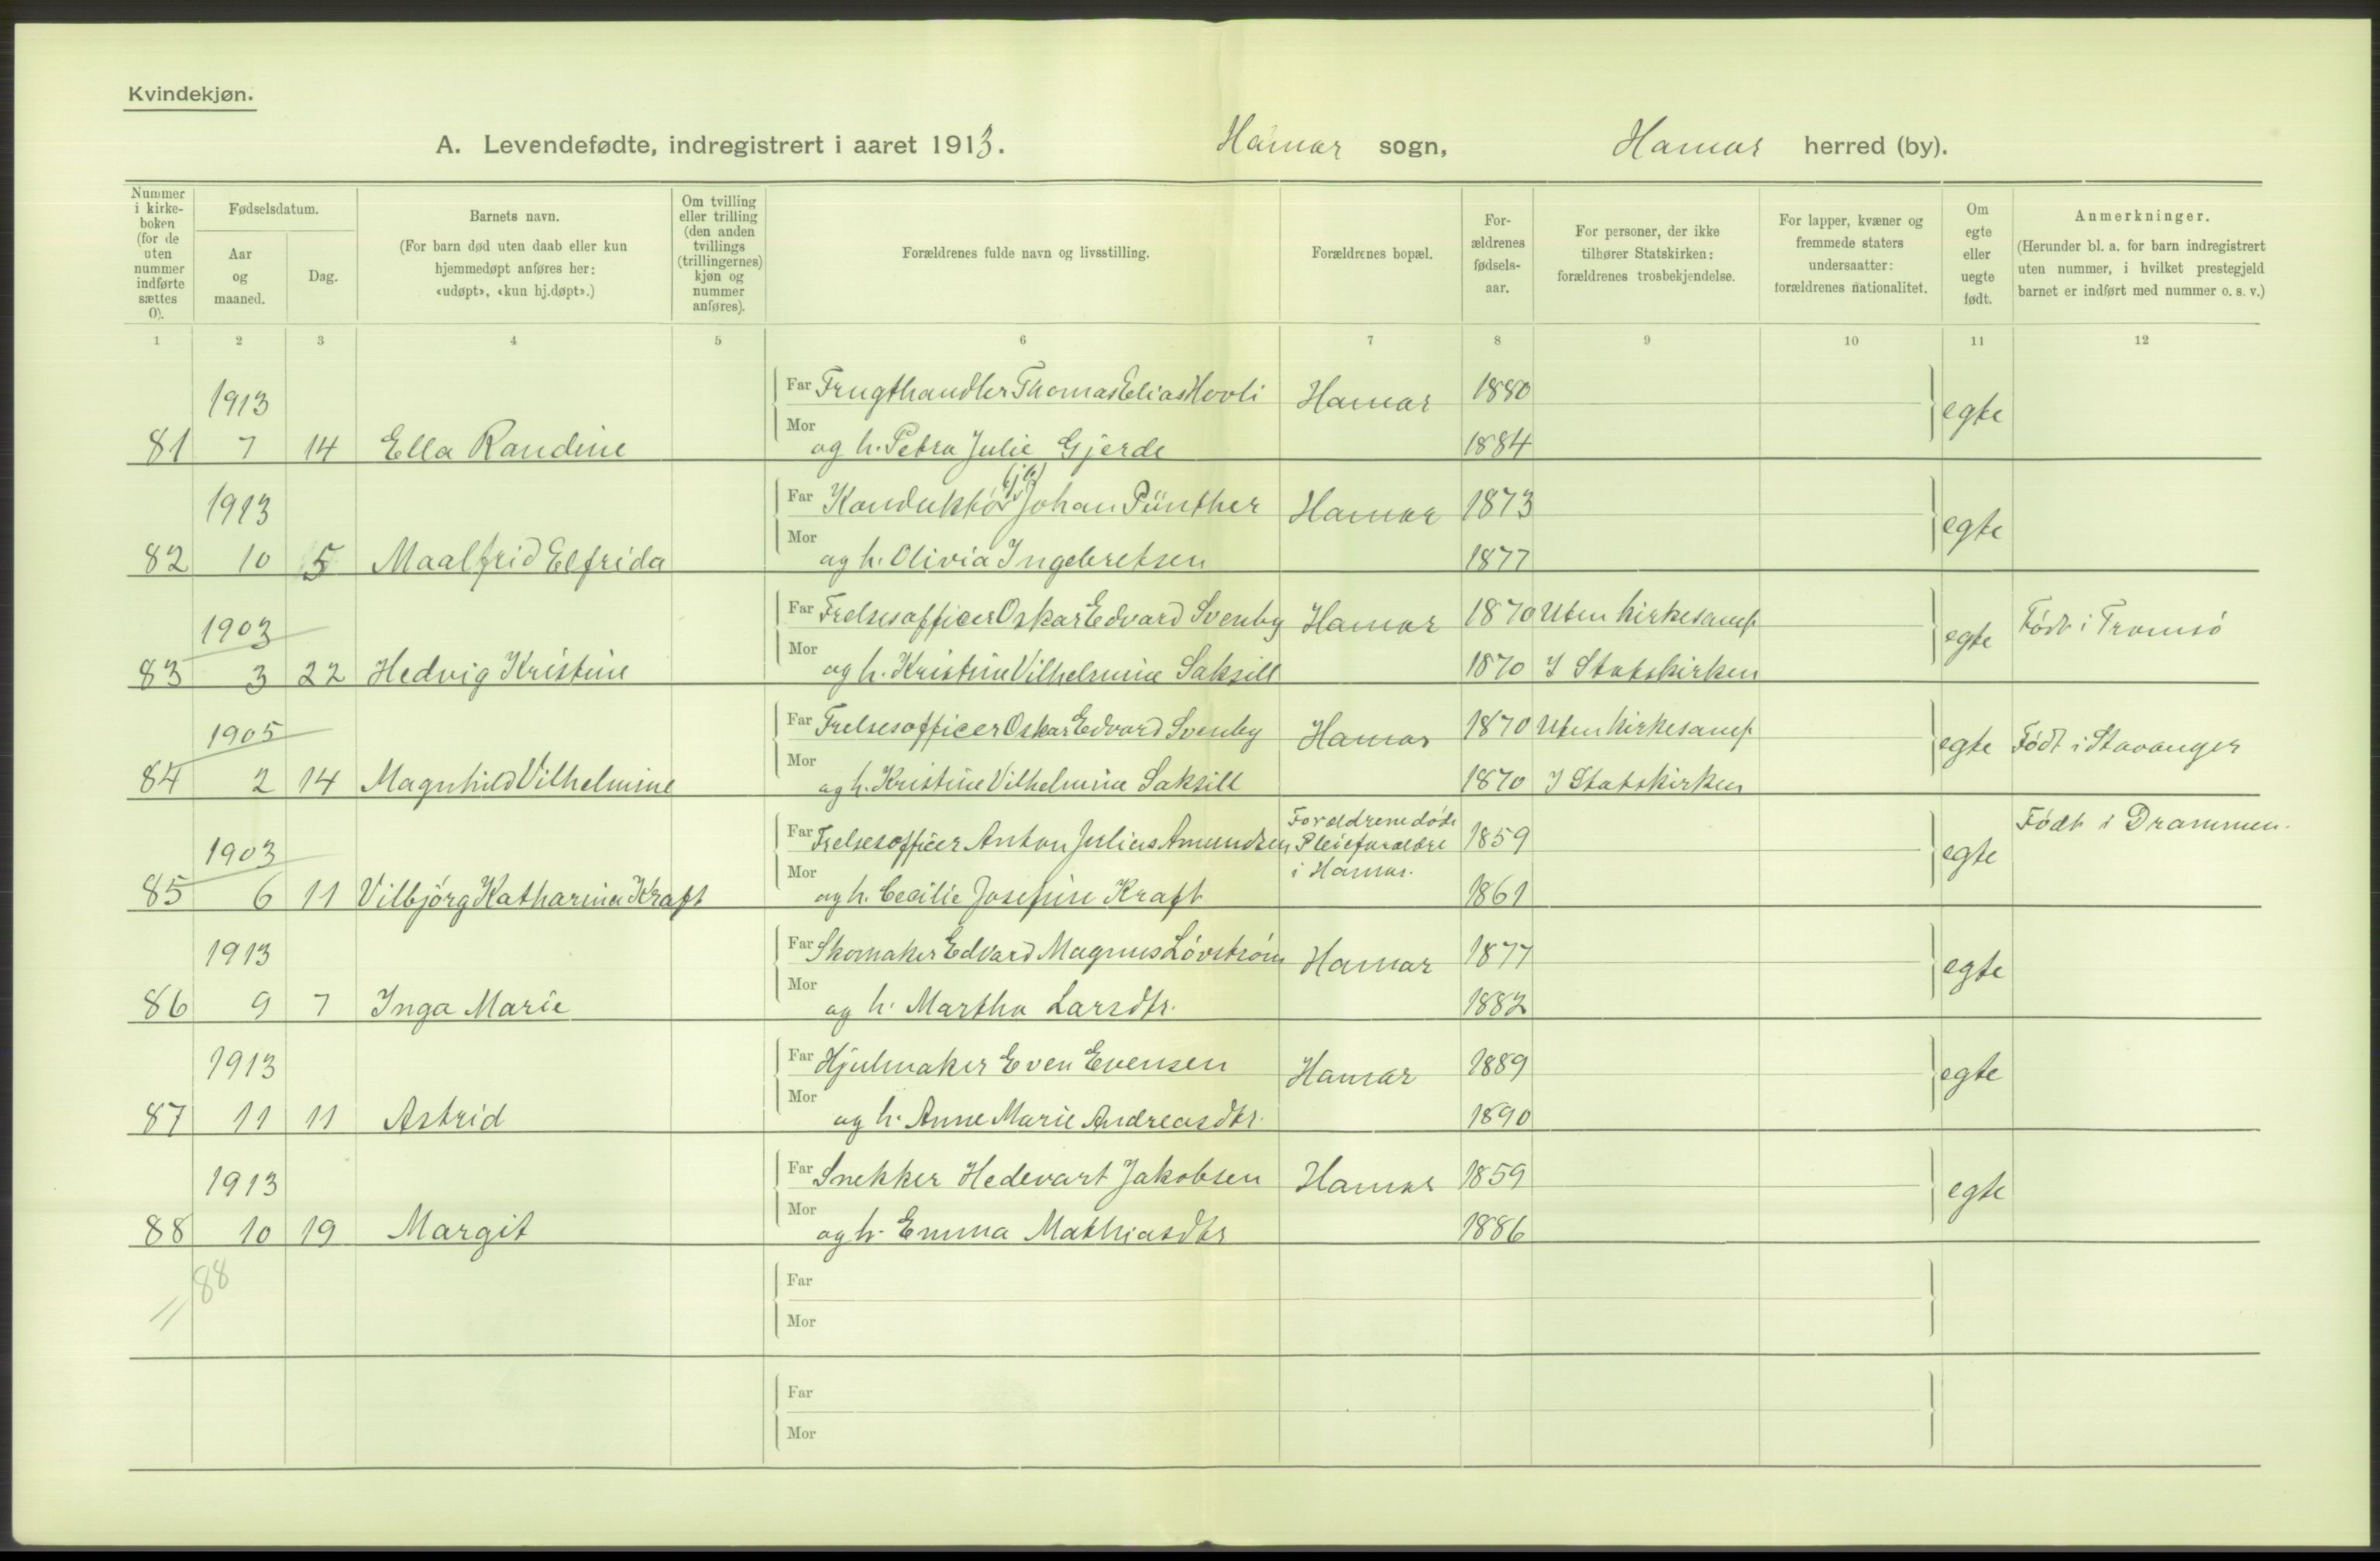 Kvindekjøn.
A. Levendefødte, indregistrert i aaret 1913. Hamar sogn, Hamar herred (by).
Nummer i kirke-boken (for de uten nummer indførte sættes 0).
Fødselsdatum.
Aar og maaned.
Dag.
Barnets navn.
(For barn død uten daab eller kun hjemmedøpt anføres her: «udøpt», «kun hj.døpt».)
Om tvilling eller trilling (den anden tvillings (trillingernes) kjøn og nummer anføres).
Forældrenes fulde navn og livsstilling.
Forældrenes bopæl.
For-ældrenes fødsels-aar.
For personer, der ikke tilhører Statskirken: forældrenes trosbekjendelse.
For lapper, kvæner og fremmede staters undersaatter: forældrenes nationalitet.
Om egte eller uegte født.
Anmerkninger.
(Herunder bl. a. for barn indregistrert uten nummer, i hvilket prestegjeld barnet er indført med nummer o. s. v.)
1 2 3 4 5 6 7 8 9 10 11 12
1913 Far Frugthandler Thomas Elias Hovli Hamar 1880 egte
81 7 14 Ella Randine Mor og h. Petra Julie Gjerde 1884
1913 Far Konduktør Johan Pünther Hamar 1873 egte
82 10 5 Maalfrid Elfrida Mor og h. Olivia Ingebretsen 1877
1903 Far Frelsesofficer Oskar Edvard Svenby Hamar 1870 Uten kirkesamf. egte Født i Tromsø
83 3 22 Hedvig Kristine Mor og h. Kristine Vilhelmine Saksill 1870 I Statskirken
1905 Far Frelsesofficer Oskar Edvard Svenby Hamar 1870 Uten kirkesamf. egte Født i Stavanger
84 2 14 Magnhild Vilhelmine Mor og h. Kristine Vilhelmine Saksill 1870 I Statskirken
1903 Far Frelsesofficer Anton Julius Amundsen Forældrene døde Pleieforældre i Hamar. 1859 egte Født i Drammen.
85 6 11 Vilbjørg Katharina Kraft Mor og h. Cecilie Josefine Kraft 1861
1913 Far Skomaker Edvard Magnus Løvstrøm Hamar 1877 egte
86 9 7 Inga Marie Mor og h. Martha Larsdtr. 1882
1913 Far Hjulmaker Even Evensen Hamar 1889 egte
87 11 11 Astrid Mor og h. Anne Marie Andreasdtr. 1890
1913 Far Snekker Hedevart Jakobsen Hamar 1859 egte
88 10 19 Margit Mor og h. Emma Mathiasdtr 1886
88
Far
Mor
Far
Mor